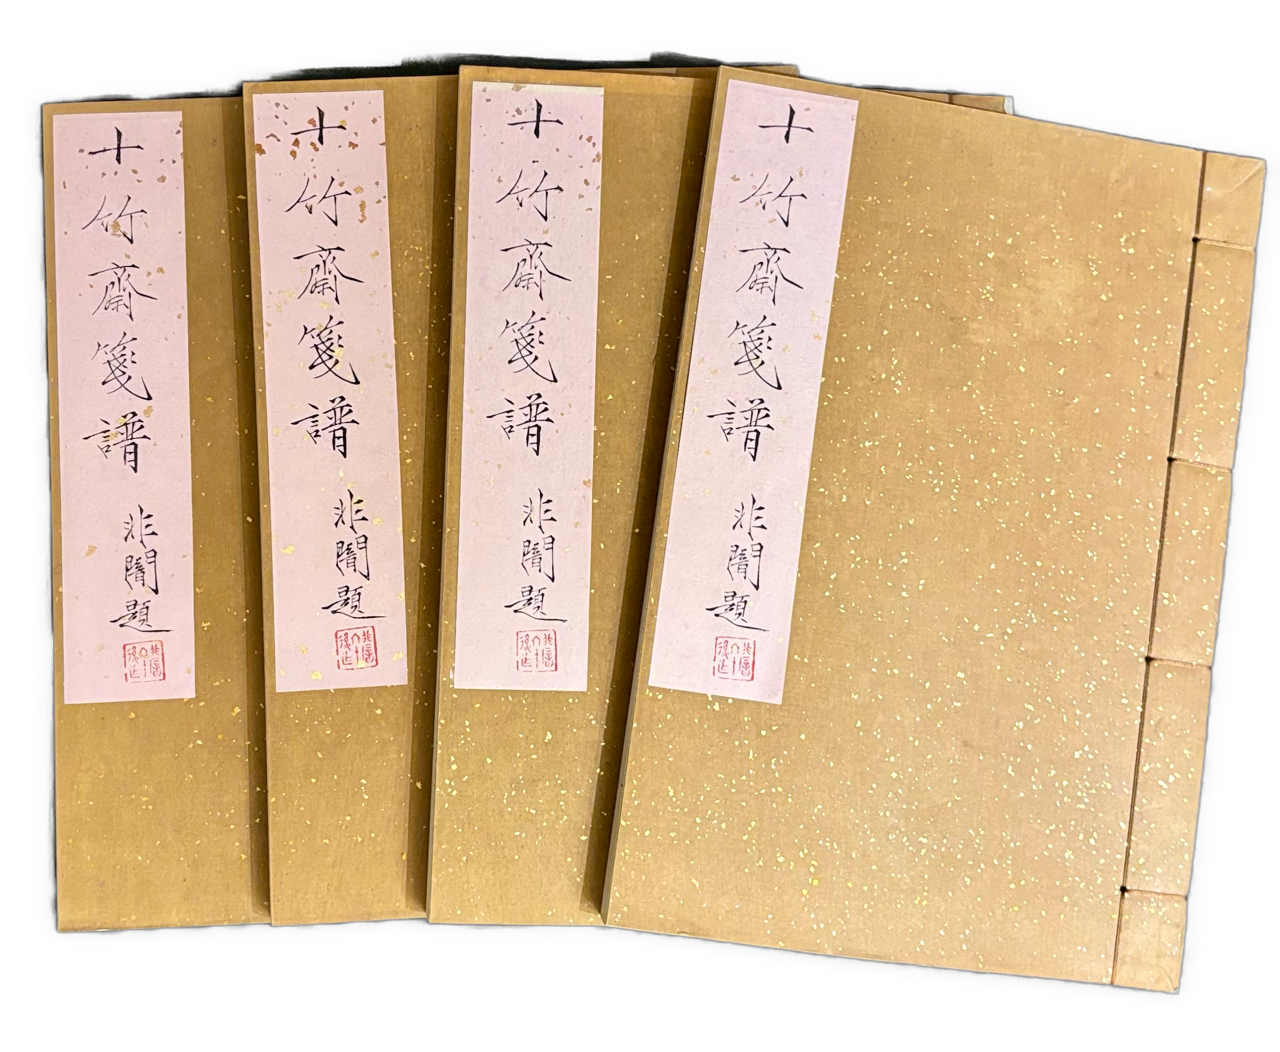 十竹齋箋譜
非闇題
十竹齋箋譜
非闇題
十竹齋箋譜
非闇題
十竹齋箋譜
非闇題